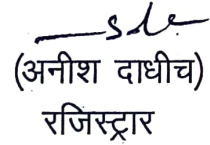 (अनीश दाधीच)
रजिस्ट्रार